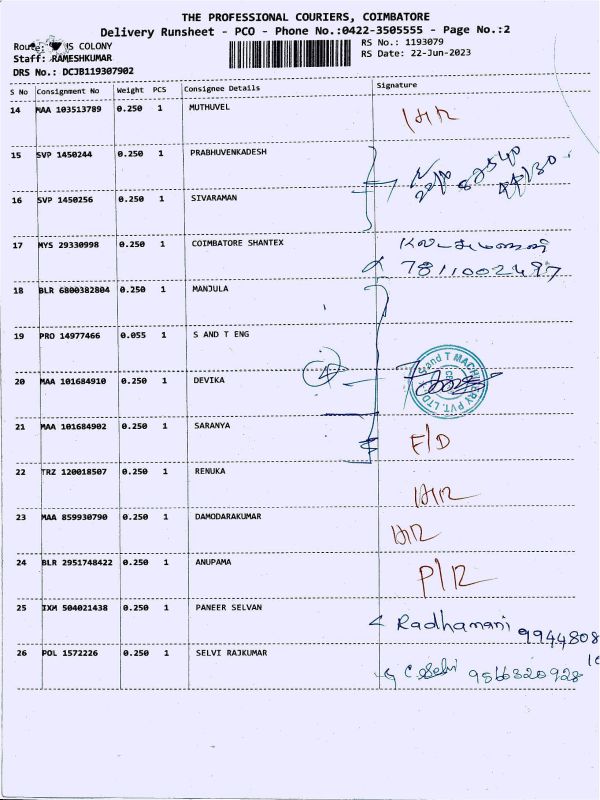 THE PROFESSIONAL COURIERS, COIMBATORE
Delivery Runsheet - PCO - Phone No.:0422-3505555 - Page No.:2
IS COLONY
RS No.: 1193079
Staff: RAMESHKUMAR
RS Date: 22-Jun-2023
DRS No.: DCJB119307902
S No Consignment No Weight PCS Consignee Details Signature
14 MAA 103513789 0.250 1 MUTHUVEL
15 SVP 1450244 0.250 1 PRABHUVENKADESH
16 SVP 1450256 0.250 1 SIVARAMAN
17 MYS 29330998 0.250 1 COIMBATORE SHANTEX
7811002497
18 BLR 6800382804 0.250 1 MANJULA
19 PRO 14977466 0.055 1 S AND T ENG
20 MAA 101684910 0.250 1 DEVIKA
21 MAA 101684902 0.250 1 SARANYA F/D
22 TRZ 120018507 0.250 1 RENUKA
23 MAA 859930790 0.250 1 DAMODARAKUMAR
24 BLR 2951748422 0.250 1 ANUPAMA P/R
25 IXM 504021438 0.250 1 PANEER SELVAN Radhamani 9944808
26 POL 1572226 0.250 1 SELVI RAJKUMAR C Selvi 9566320928